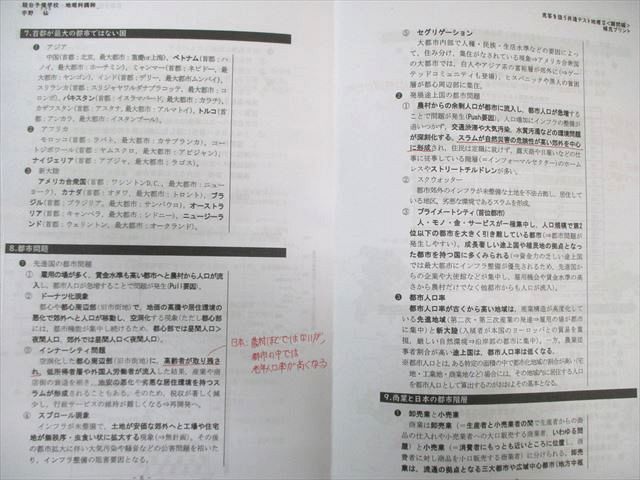 駿台予備学校 地理科講師
宇野 仙
7.首都が最大の都市ではない国
❶ アジア
中国(首都:北京，最大都市:重慶or上海)，ベトナム(首都:ハノイ，最大都市:ホーチミン)，ミャンマー(首都:ネピドー，最大都市:ヤンゴン)，インド(首都:デリー，最大都市ムンバイ)，
スリランカ(首都:スリジャヤワルダナプラコッテ，最大都市:コロンボ)，パキスタン(首都:イスラマバード，最大都市:カラチ)，
カザフスタン(首都:アスタナ，最大都市:アルマトイ)，トルコ(首都:アンカラ，最大都市:イスタンブール)，
❷ アフリカ
モロッコ(首都:ラバト，最大都市:カサブランカ)，コートジボワール(首都:ヤムスクロ，最大都市:アビジャン)，
ナイジェリア(首都:アブジャ，最大都市:ラゴス)，
❸ 新大陸
アメリカ合衆国(首都:ワシントンD.C.，最大都市:ニューヨーク)，カナダ(首都:オタワ，最大都市:トロント)，ブラジル(首都:ブラジリア，最大都市:サンパウロ)，オーストラリア(首都:キャンベラ，最大都市:シドニー)，ニュージーランド(首都:ウェリントン，最大都市:オークランド)，
8.都市問題
❶ 先進国の都市問題
① 雇用の場が多く，賃金水準も高い都市へと農村から人口が流入し，都市人口が急増することで問題が発生(Pull要因)。
② ドーナツ化現象
都心や都心周辺部(旧市街地)で，地価の高騰や居住環境の悪化で郊外へと人口が移動し，空洞化する現象(ただし都心部には，都市機能が集中し続けるため，都心部では昼間人口>夜間人口，郊外では昼間人口<夜間人口)。
③ インナーシティ問題
空洞化した都心周辺部(旧市街地)に，高齢者が取り残され，低所得者層や外国人労働者が流入した結果，産業や商店街の衰退を招き，治安の悪化や劣悪な居住環境を持つスラムが形成されることもある。そのため，税収が著しく減少し，行政サービスの維持が難しくなる⇒再開発へ。
④ スプロール現象
インフラが未整備で，土地が安価な郊外へと工場や住宅地が無秩序・虫食い状に拡大する現象(⇒無計画)。その後の都市拡大に伴い大気汚染や騒音などの公害問題を招いたり，インフラ整備の阻害要因となる。
日本：農村ほどではないが、
都市の中では
老年人口率が高くなる
充実を図う共通テスト地理
補充プリント
⑤ セグリゲーション
大都市内部で人種・民族・生活水準などの要因によって，住み分け，集住がなされている現象⇒アメリカ合衆国の大都市では，白人やアジア系の富裕層が郊外に(⇒ゲーテッドコミュニティも登場)，ヒスパニックや黒人の貧困層が都心周辺部に集住。
❷ 発展途上国の都市問題
① 農村からの余剰人口が都市に流入し，都市人口が急増することで問題が発生(Push要因)。人口増加にインフラの整備が追いつかず，交通渋滞や大気汚染，水質汚濁などの環境問題が深刻化する。スラムが自然災害の危険性が高い郊外を中心に形成され，住民は定職に就けず，露天商や日雇いなどの仕事に従事している階層(＝インフォーマルセクター)のホームレスやストリートチルドレンが多い。
② スクウォッター
都市郊外のインフラが未整備な土地を不法占拠し，居住している地区。劣悪な環境であるスラムを形成。
③ プライメートシティ(首位都市)
人・モノ・金・サービスが一極集中し，人口規模で第2位以下の都市を大きく引き離している都市(⇒都市問題が発生しやすい)。成長著しい途上国や植民地の拠点となった都市を持つ国に多くみられる(⇒資金力の乏しい途上国では最大都市にインフラ整備が優先されるため，先進国からの企業や大使館などが集中し，雇用の場や賃金水準の高さから農村だけでなく他都市からも人口が流入)。
❸ 都市人口率
都市人口率が古くから高い地域は，産業構造が高度化している先進地域(第二次・第三次産業の発達⇒雇用の場が都市に集中)と新大陸(入植者が本国のヨーロッパとの貿易を重視，厳しい自然環境⇒沿岸部の都市に集中)。一方，農業従事者割合が高い途上国は，都市人口率は低くなる。
※都市人口とは，ある特定の面積の中で都市化地域の割合が高い(宅地・工業地・商業地など)場合には，その地域内に居住する人口を都市人口として算出するのがおおよその基本となる。
9.商業と日本の都市階層
❶ 卸売業と小売業
商業は卸売業(＝生産者と小売業者の間で生産者からの商品の仕入れや小売業者への大口販売する商業者，いわゆる問屋)と小売業(＝消費者にもっとも近いところに位置し，消費者に対し商品を小口販売する商業者)に分けられる。卸売業は，流通の拠点となる三大都市や広域中心都市(地方中枢